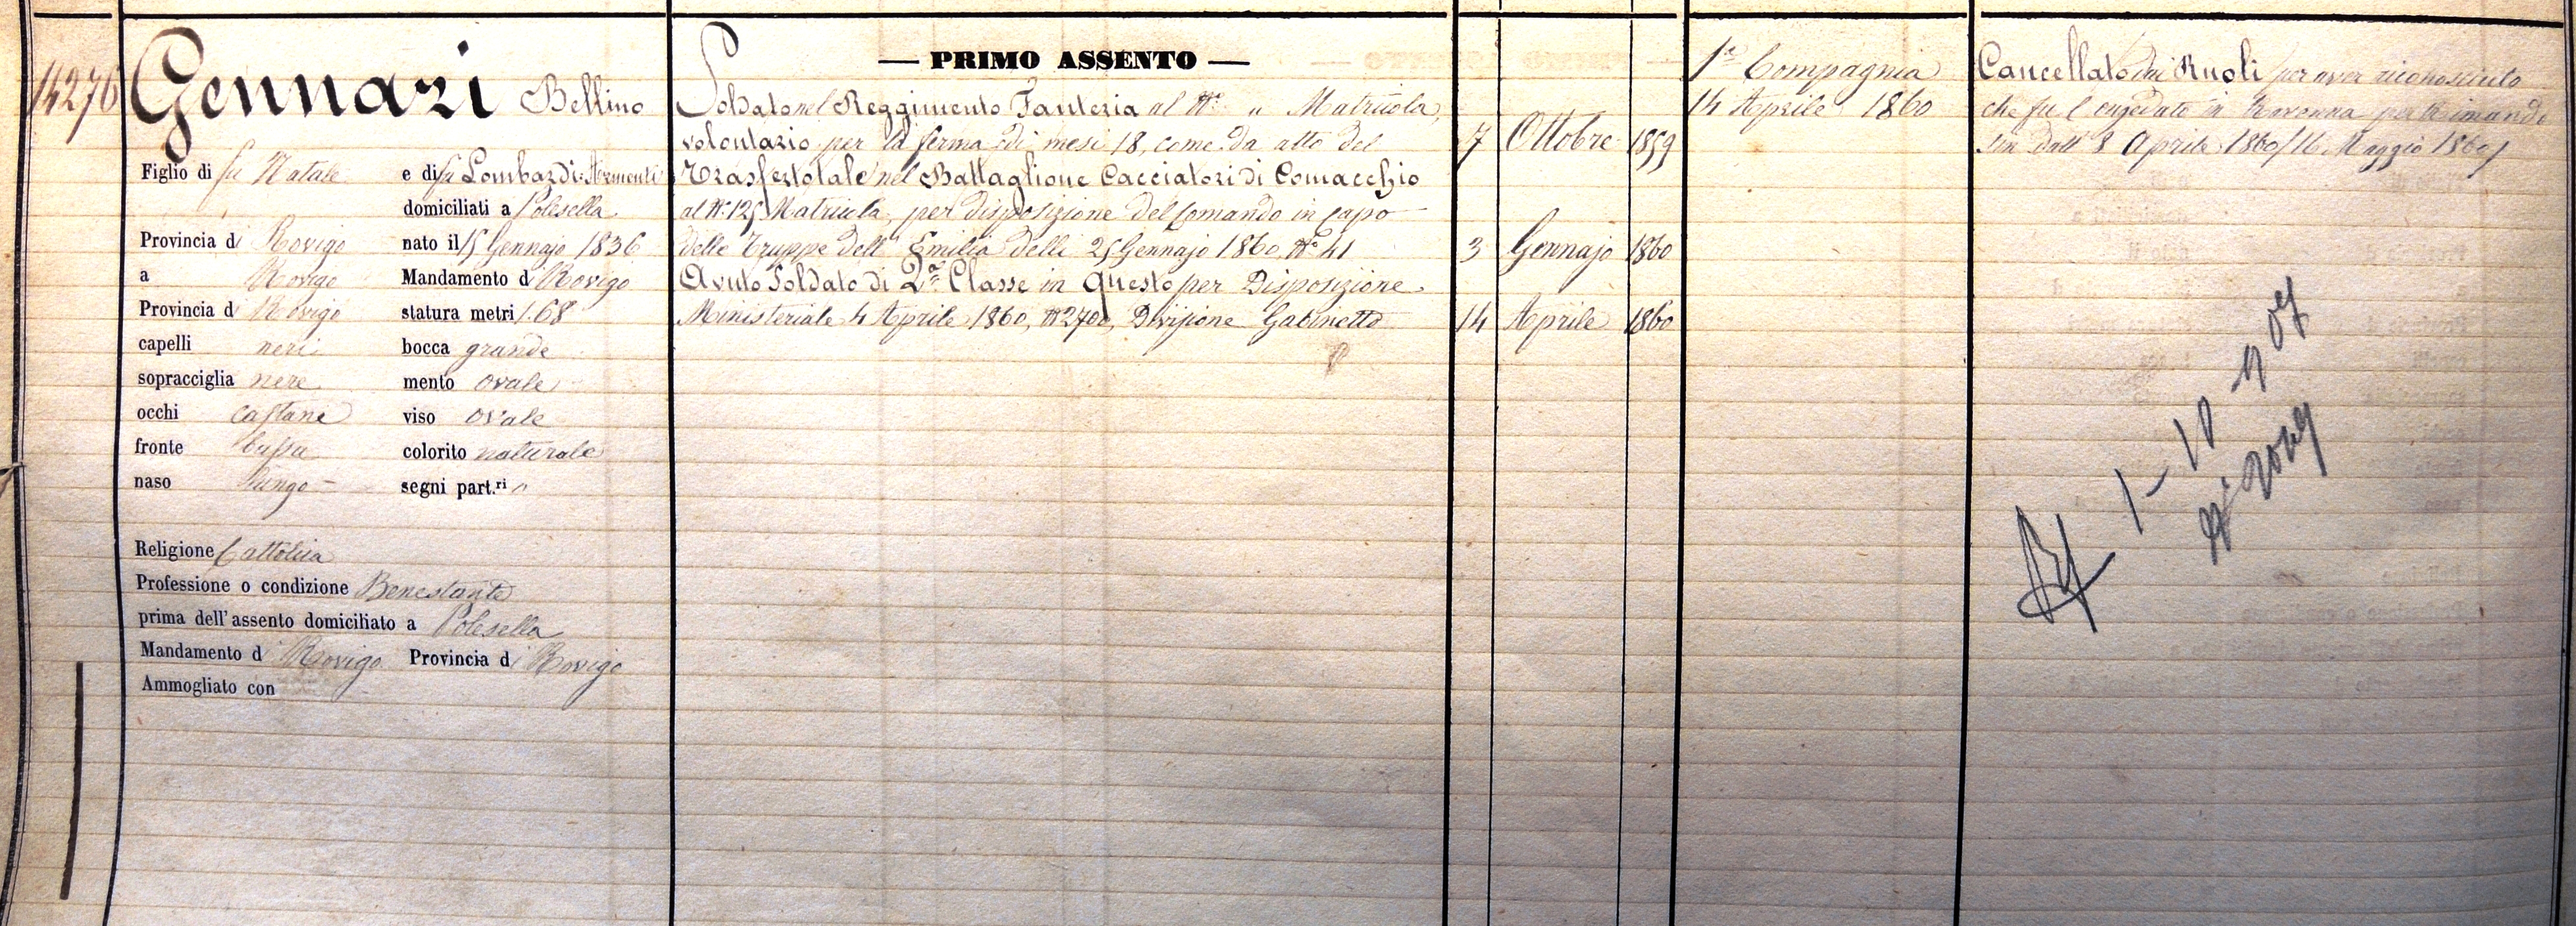 14276
Gennari Bellino
Figlio di fu Natale e di fu Lombardi
domiciliati a Polesella
Provincia di Rovigo nato il 15 Gennajo 1836
a Rovigo Mandamento di Rovigo
Provincia di Rovigo statura metri 1.68
capelli neri bocca grande
sopracciglia nere mento ovale
occhi castani viso ovale
fronte bassa colorito naturale
naso lungo segni part.ri "
Religione Cattolica
Professione o condizione Benestante
prima dell'assento domiciliato a Polesella
Mandamento di Rovigo Provincia di Rovigo
Ammogliato con
— PRIMO ASSENTO —
Soldato nel Reggimento Fanteria al N° " Matricola,
volontario per la ferma di mesi 18, come da atto del 7 Ottobre 1859
Trasfert o tale nel Battaglione Cacciatori di Comacchio
al N° 125 Matricola, per disposizione del Comando in capo
delle Truppe dell'Emilia delli 25 Gennajo 1860 N° 41 3 Gennajo 1860
Avuto Soldato di 2a Classe in questo per Disposizione
Ministeriale 4 Aprile 1860, N° 2700, Divisione Gabinetto 14 Aprile 1860
1a Compagnia
14 Aprile 1860
Cancellato dai Ruoli per aver riconosciuto
che fu Congedato in Ravenna per Rimando
sin dall' 8 Aprile 1860 / 16 Maggio 1860 /
1-10-907